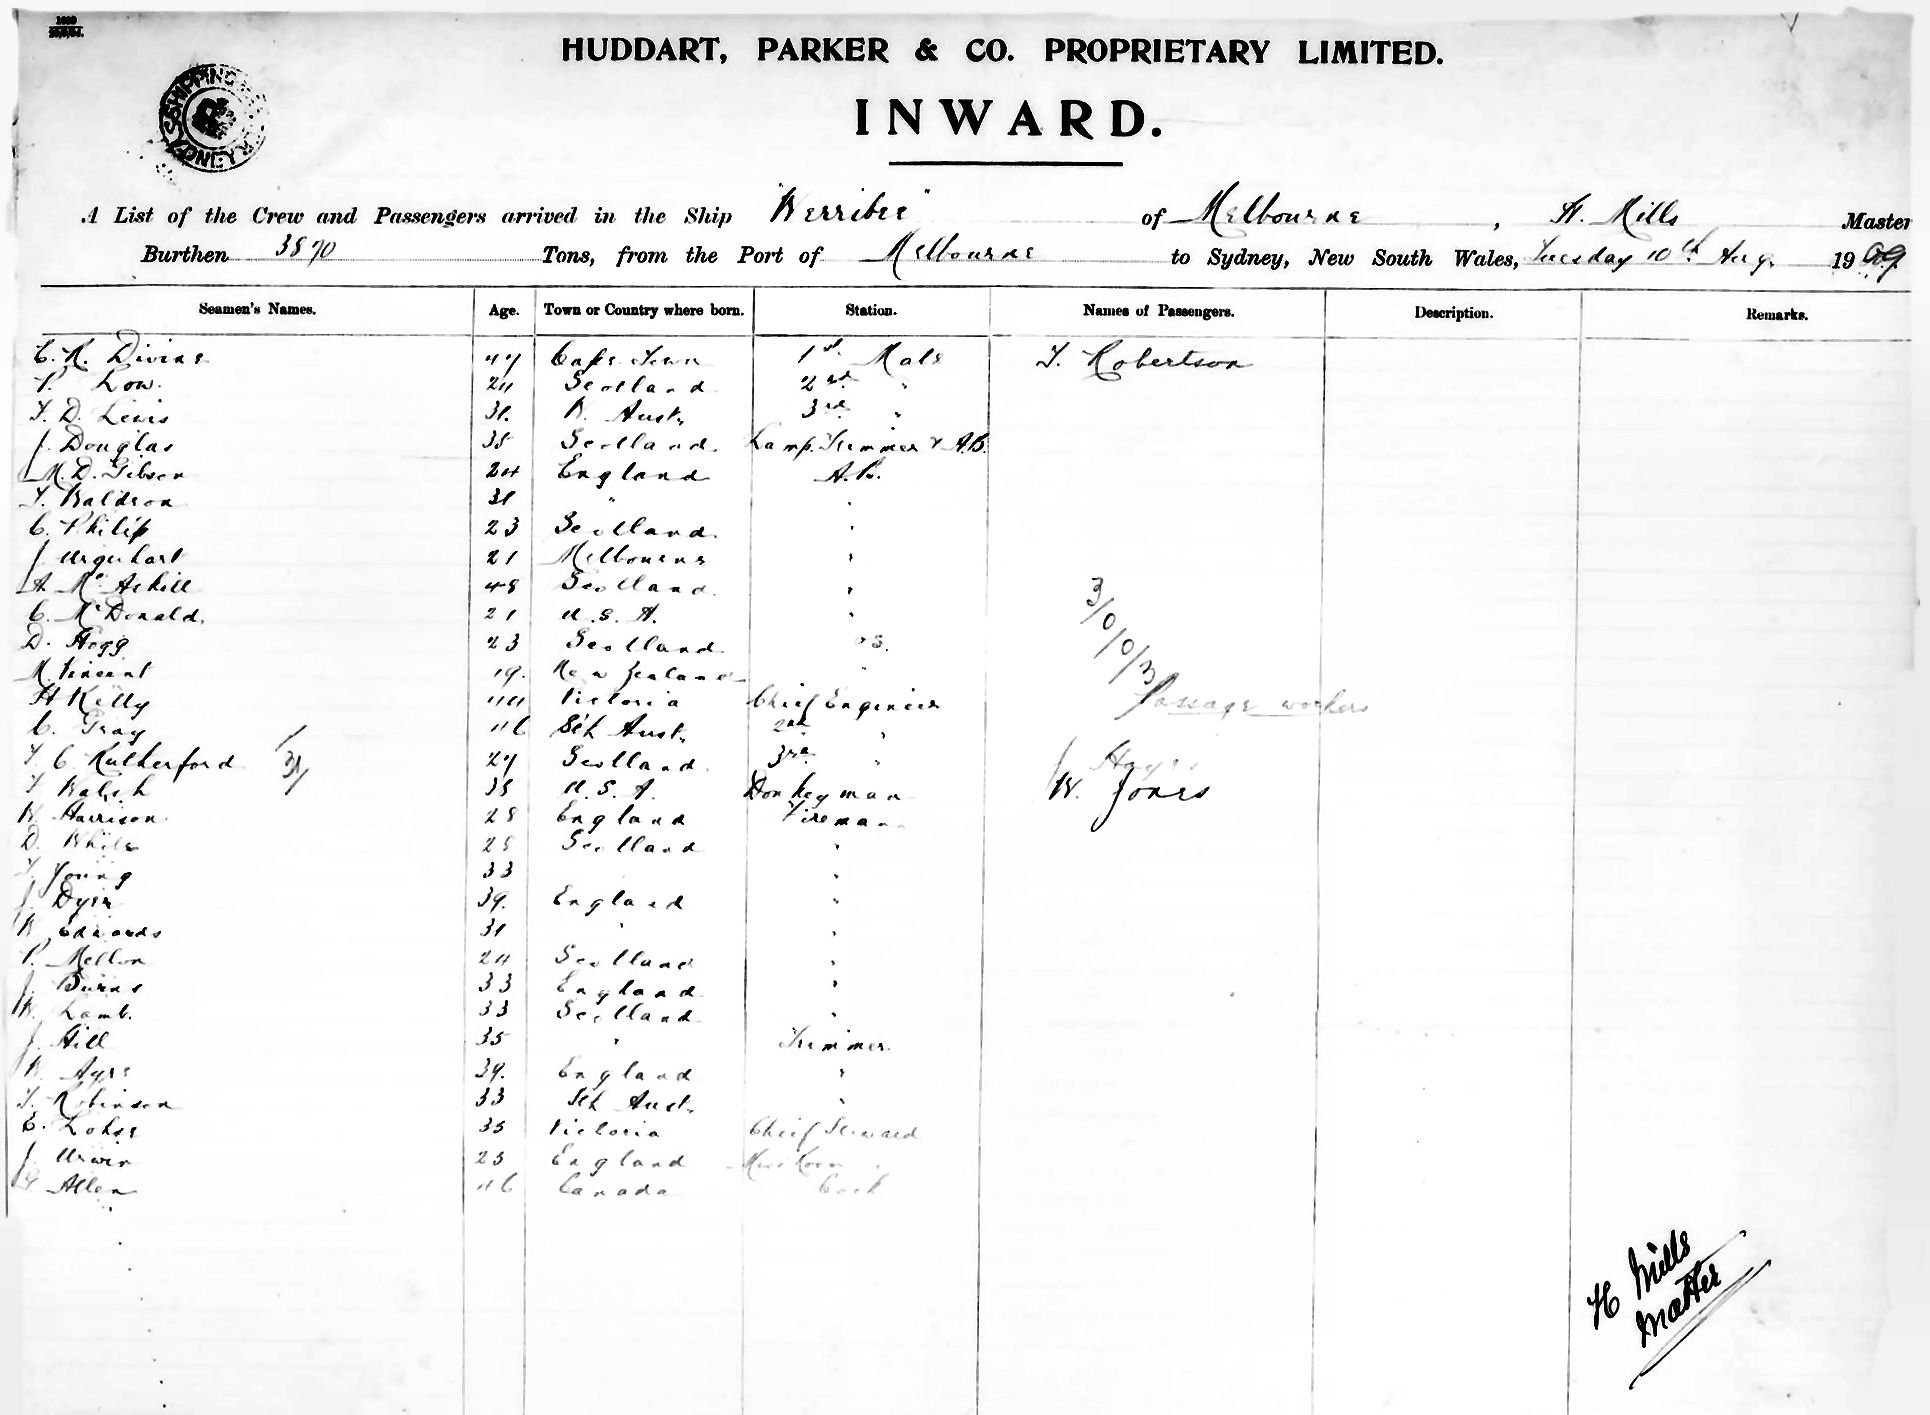 HUDDART, PARKER & CO. PROPRIETARY LIMITED.
INWARD.
A List of the Crew and Passengers arrived in the Ship "Werribee" of Melbourne, H. Mills Master
Burthen 3870 Tons, from the Port of Melbourne to Sydney, New South Wales, Tuesday 10th Aug. 1909
Seamen's Names. Age. Town or Country where born. Station. Names of Passengers. Description. Remarks.
C. R. Divine 47 Cape Town 1st Mate T. Robertson
P. Low. 24 Scotland 2nd "
T. D. Lewis 31. W. Aust. 3rd "
J. Douglas 35 Scotland. Lamp Trimmer & A.B.
M. D. Gibson 24 England A.B.
T. Waldron 31 " "
C. Philip 23 Scotland. "
J. Urquhart 21 Melbourne "
A. McAskill 48 Scotland. "
C. McDonald. 21 U.S.A. "
D. Hogg 23 Scotland OS.
M. Vincent 19. New Zealand "
3/0/0/3
H Kelly 44 Victoria Chief Engineer Passage workers
C. Gray 46 Sth Aust. 2nd "
T C Rutherford 27 Scotland 3rd " Hayes
T Walsh 35 U.S.A. Donkeyman W. Jones
W. Harrison. 28 England Fireman
D. White 28 Scotland "
T. Young 33 "
J. Dyer 39. England "
W Edwards 31 " "
P. Mellon 24 Scotland "
J. Burns 33 England "
W. Lamb. 33 Scotland "
J. Hill 35 " Trimmer
W. Ayre 39. England "
T. Robinson 33 Sth Aust. "
C. Lohse 35 Victoria Chief Steward
J. Urwin 23 England Mess Room "
G Allen 46 Canada Cook
H Mills
Master